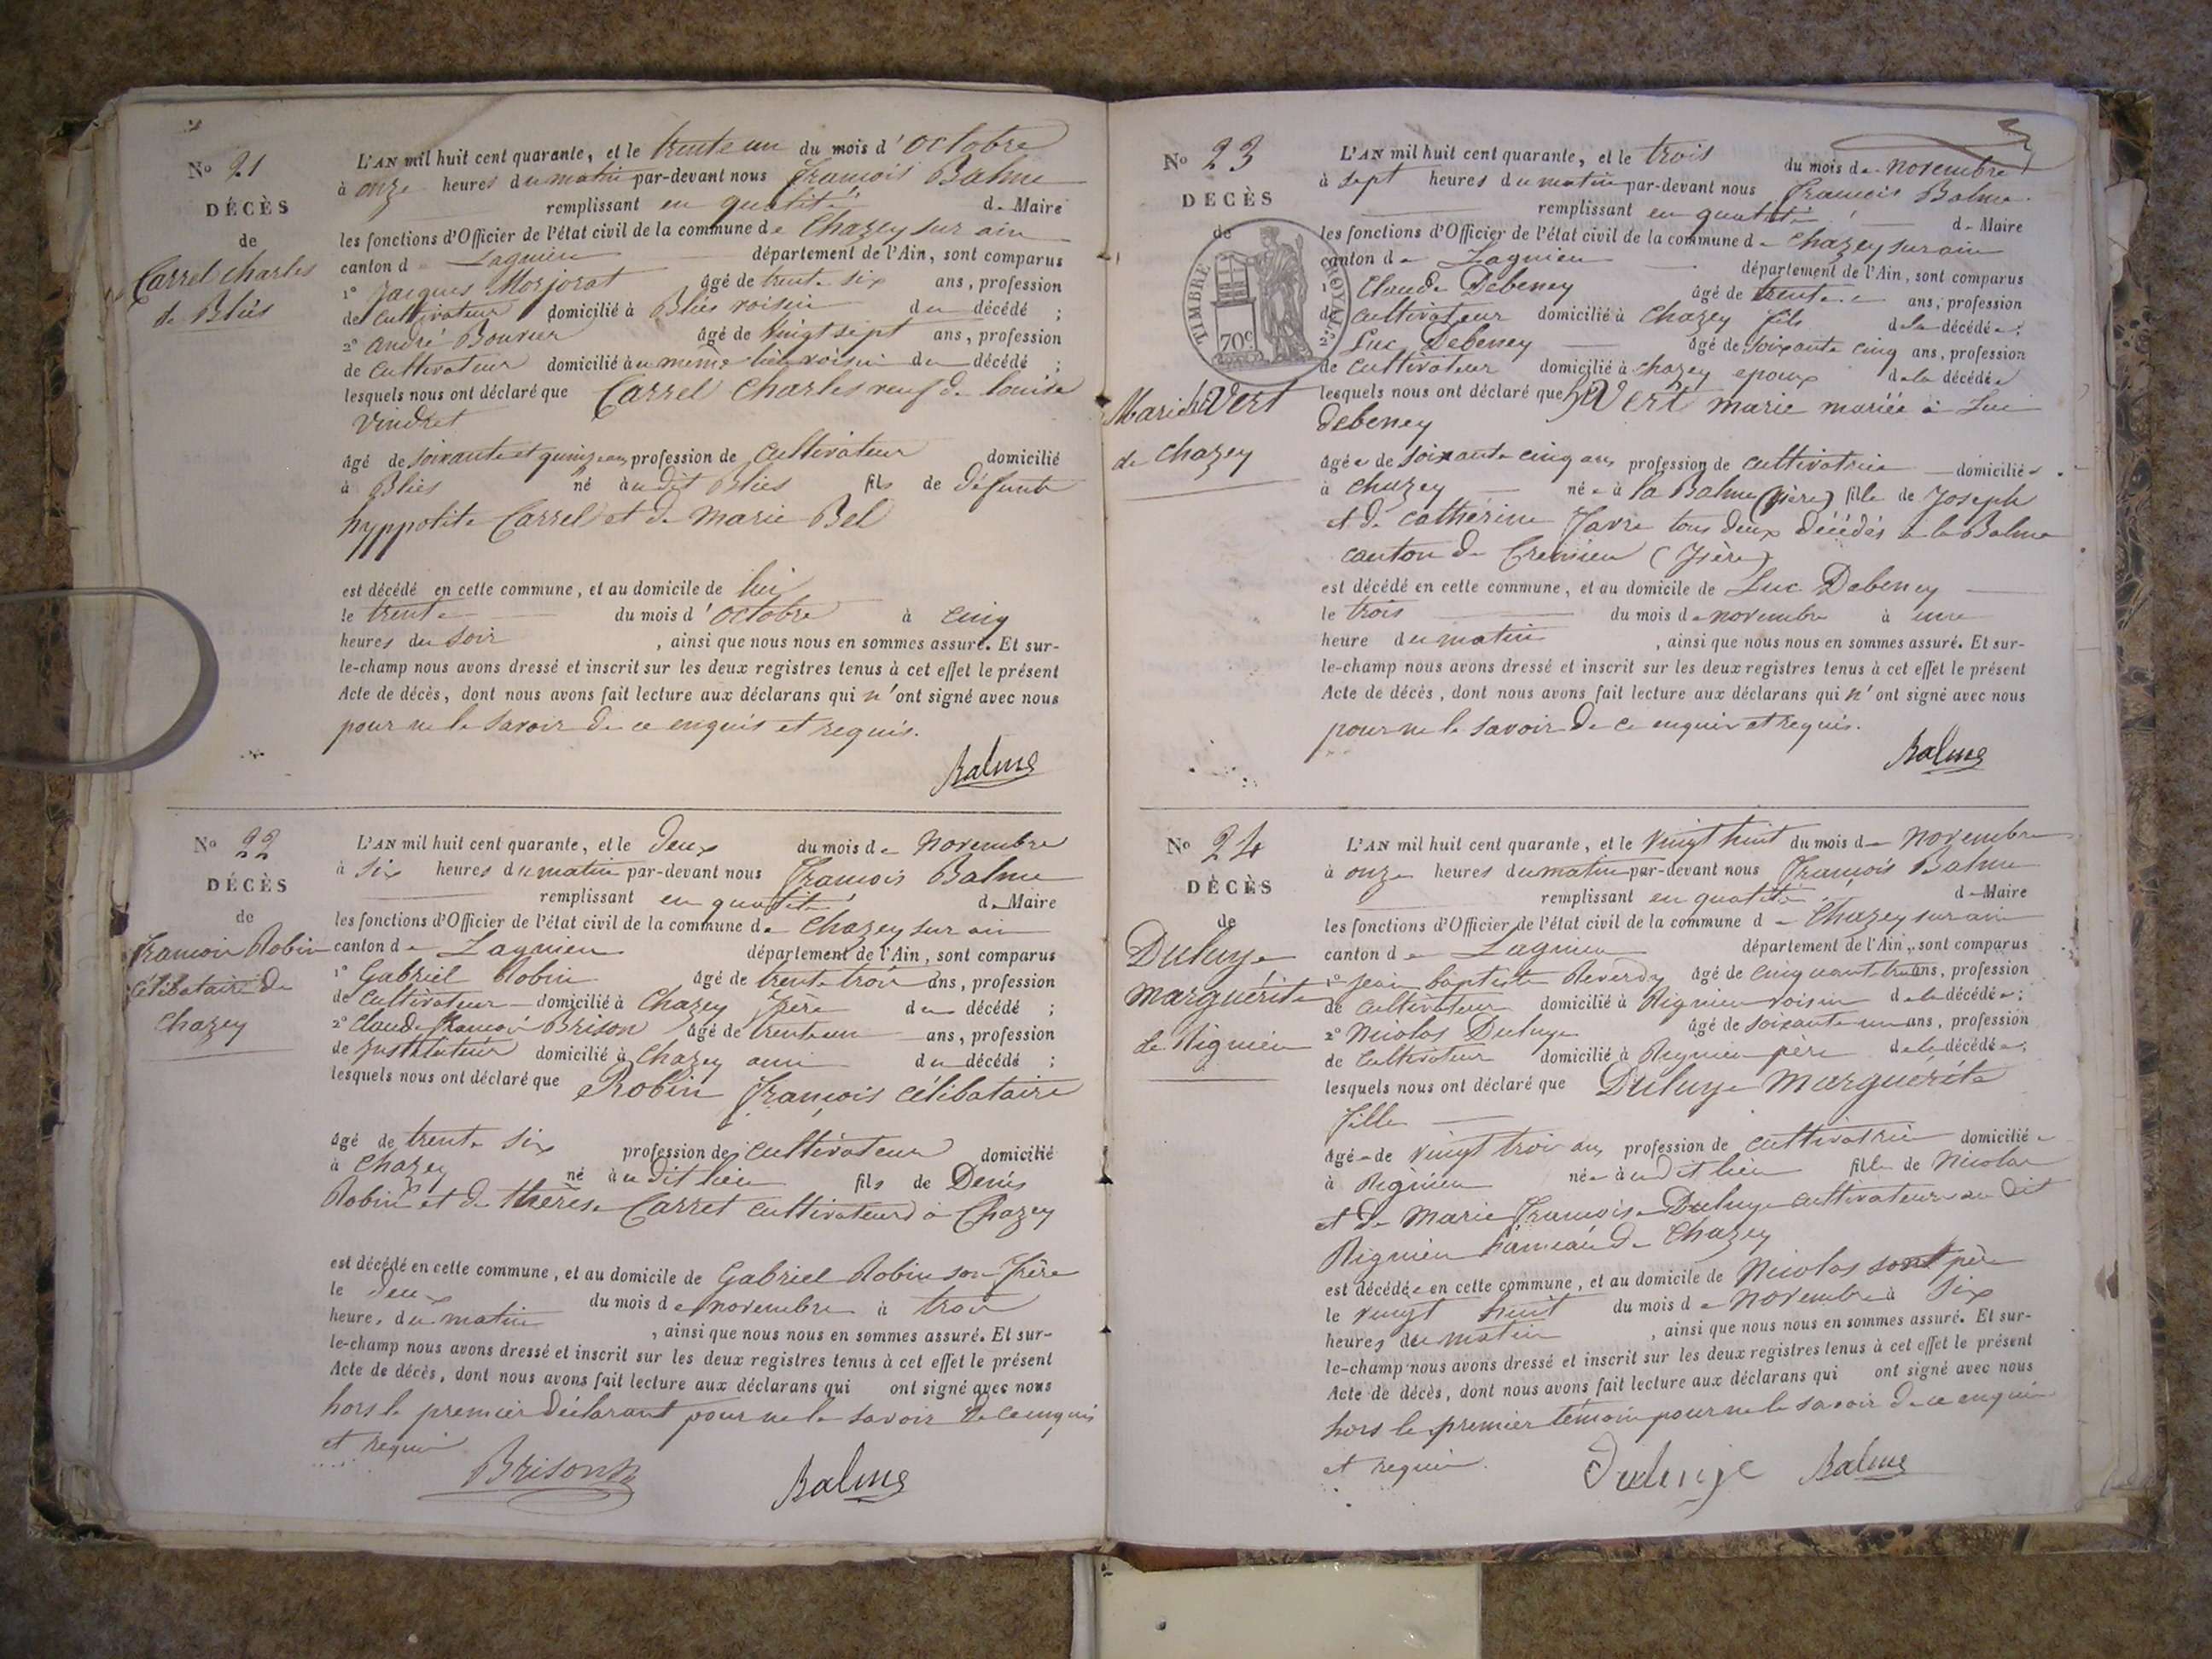 No 21
DÉCÈS
de
Carrel Charles
de Bliés
L'AN mil huit cent quarante, et le trente un du mois d'octobre
à onze heures du matin par-devant nous François Balme
remplissant en qualité de Maire
les fonctions d'Officier de l'état civil de la commune de Chazey sur ain
canton d Lagnieu département de l'Ain, sont comparus
1º Jacques Morjorat âgé de trente six ans, profession
de cultivateur domicilié à Bliés voisin du décédé ;
2º andré Bouvier âgé de vingt sept ans, profession
de cultivateur domicilié au même lieu voisin du décédé ;
lesquels nous ont déclaré que Carrel Charles veuf de louise
Vindret
âgé de soixante et quinze ans profession de cultivateur domicilié
à Bliés né au dit Bliés fils de défunt
hyppolite Carrel et de marie Bel
est décédé en cette commune, et au domicile de lui
le trente du mois d'octobre à cinq
heures du soir , ainsi que nous nous en sommes assuré. Et sur-
le-champ nous avons dressé et inscrit sur les deux registres tenus à cet effet le présent
Acte de décès, dont nous avons fait lecture aux déclarans qui n'ont signé avec nous
pour ne le savoir de ce enquis et requis.
Balme
No 22
DÉCÈS
de
François Robin
célibataire de
Chazey
L'AN mil huit cent quarante, et le deux du mois de novembre
à six heures du matin par-devant nous François Balme
remplissant en qualité de Maire
les fonctions d'Officier de l'état civil de la commune de Chazey sur ain
canton de Lagnieu département de l'Ain, sont comparus
1º Gabriel Robin âgé de trente trois ans, profession
de cultivateur domicilié à Chazey frère du décédé ;
2º Claude François Brison âgé de trente un ans, profession
de instituteur domicilié à Chazey ami du décédé ;
lesquels nous ont déclaré que Robin françois célibataire
âgé de trente six profession de cultivateur domicilié
à Chazey né au dit lieu fils de Denis
Robin et de thérèse Carret cultivateurs à Chazey
est décédé en cette commune, et au domicile de Gabriel Robin son frère
le deux du mois de novembre à trois
heures du matin , ainsi que nous nous en sommes assuré. Et sur-
le-champ nous avons dressé et inscrit sur les deux registres tenus à cet effet le présent
Acte de décès, dont nous avons fait lecture aux déclarans qui ont signé avec nous
hors le premier déclarant pour ne le savoir de ce enquis
et requis
Brison Balme
No 23
DÉCÈS
de
TIMBRE ROYAL
70c
Marie Vert
de Chazey
L'AN mil huit cent quarante, et le trois du mois de novembre
à sept heures du matin par-devant nous François Balme
remplissant en qualité de Maire
les fonctions d'Officier de l'état civil de la commune de Chazey sur ain
canton de Lagnieu département de l'Ain, sont comparus
1º Claude Debeney âgé de trente ans, profession
de cultivateur domicilié à Chazey fils de la décédée ;
2º Luc Debeney âgé de soixante cinq ans, profession
de cultivateur domicilié à chazey epoux de la décédée
lesquels nous ont déclaré que Vert marie mariée à Luc
debeney
âgée de soixante cinq ans profession de cultivatrice domiciliée
à chazey née à la Balme (Isère) fille de Joseph
et de catherine Favre tous deux décédés à la Balme
canton de Cremieu (Isère)
est décédé en cette commune, et au domicile de Luc Debeney
le trois du mois de novembre à une
heure du matin , ainsi que nous nous en sommes assuré. Et sur-
le-champ nous avons dressé et inscrit sur les deux registres tenus à cet effet le présent
Acte de décès, dont nous avons fait lecture aux déclarans qui n'ont signé avec nous
pour ne le savoir de ce enquis et requis.
Balme
No 24
DÉCÈS
de
Duluye
marguerite
de Rignieu
L'AN mil huit cent quarante, et le vingt huit du mois de novembre
à onze heures du matin par-devant nous François Balme
remplissant en qualité de Maire
les fonctions d'Officier de l'état civil de la commune de Chazey sur ain
canton de Lagnieu département de l'Ain, sont comparus
1º jean baptiste Reverdy âgé de cinquante trois ans, profession
de cultivateur domicilié à Rignieu voisin de la décédée ;
2º Nicolas Duluye âgé de soixante un ans, profession
de cultivateur domicilié à Rignieu père de la décédée ;
lesquels nous ont déclaré que Duluye marguerite
fille
âgée de vingt trois ans profession de cultivatrice domiciliée
à Rignieu née au dit lieu fille de Nicolas
et de marie françoise Duluye cultivateurs au dit
Rignieu hameau de Chazey
est décédée en cette commune, et au domicile de Nicolas son père
le vingt huit du mois de novembre à six
heures du matin , ainsi que nous nous en sommes assuré. Et sur-
le-champ nous avons dressé et inscrit sur les deux registres tenus à cet effet le présent
Acte de décès, dont nous avons fait lecture aux déclarans qui ont signé avec nous
hors le premier témoin pour ne le savoir de ce enquis
et requis.
Duluye Balme